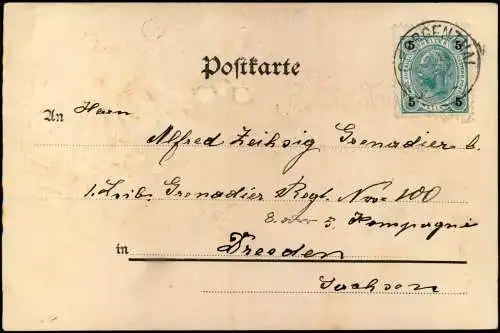 Postkarte
5 5
GEORGENTHAL
5 5
An Herrn
Alfred Zeihsig Grenadier b.
1. Leib. Grenadier Regt. Nro 100
3. Kompagnie
in Dresden
Sachsen